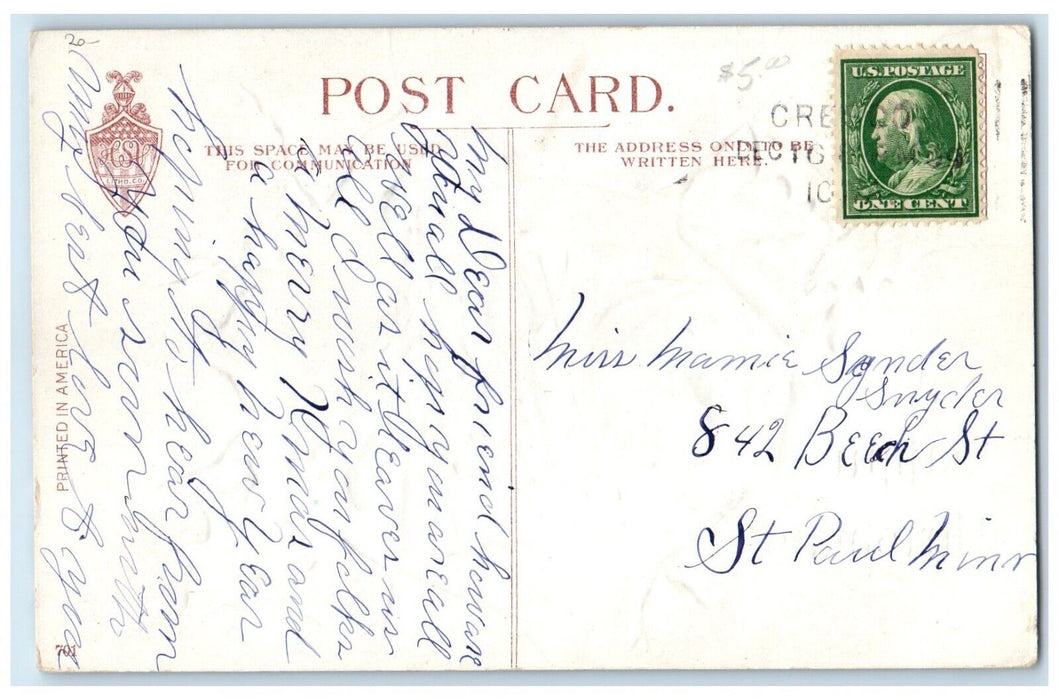 POST CARD.
THIS SPACE MAY BE USED
FOR COMMUNICATION
THE ADDRESS ONLY TO BE
WRITTEN HERE.
$5.00
CRE O
DEC 16
U.S. POSTAGE
ONE CENT
LITHO. CO.
PRINTED IN AMERICA
701
My Dear friend how are
you all hop you are all
well as it leaves us
all I wish you folks
a merry Xmas and
a happy new year
hoping to hear from
you soon with
best love to you
Miss Mamie Synder
Snyder
842 Beech St
St Paul Minn